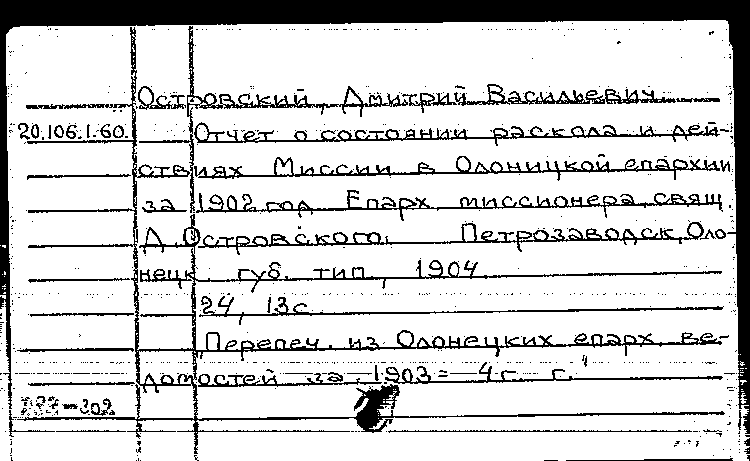 Островский, Дмитрий Васильевич.
20.106.1.60. Отчет о состоянии раскола и дей-
ствиях Миссии в Олоницкой епархии
за 1902 год Епарх. миссионера свящ.
Д. Островского. Петрозаводск, Оло-
нецк. губ. тип., 1904.
24, 13 с.
"Перепеч. из Олонецких епарх. ве-
домостей за 1903 = 4 г. г."